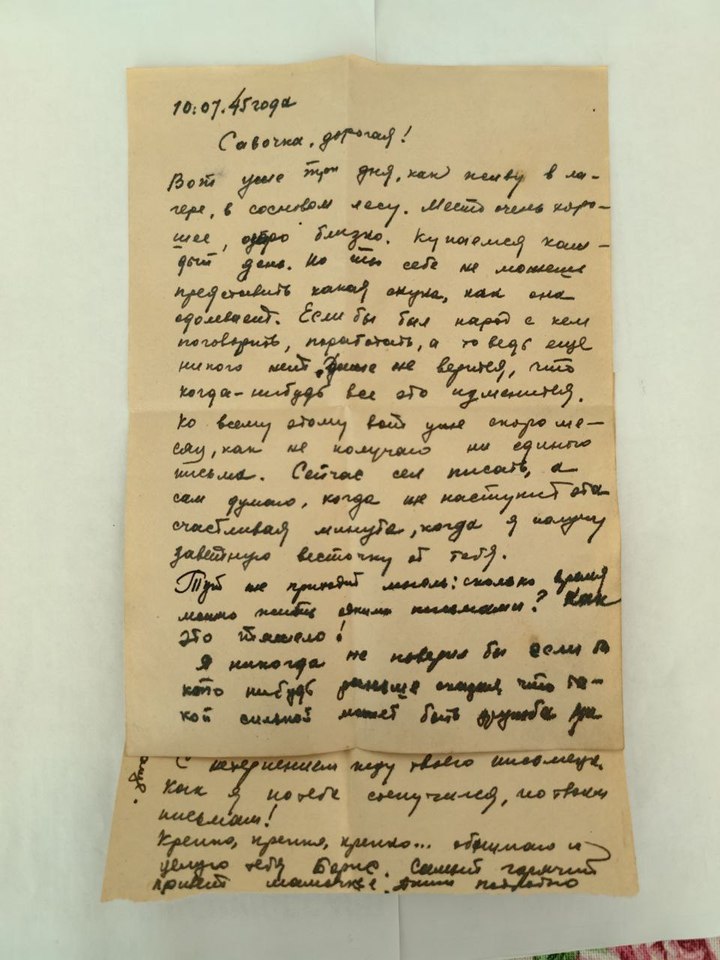 10.07.45 года
Савочка, дорогая!
Вот уже три дня, как живу в ла-
гере, в сосновом лесу. Место очень хоро-
шее, озеро близко. Купаемся каж-
дый день. Но ты себе не можешь
представить какая скука, как она
одолевает. Если бы был народ с кем
поговорить, поработать, а то ведь еще
никого нет. Даже не верится, что
когда-нибудь все это изменится.
Ко всему этому вот уже скоро ме-
сяц, как не получаю ни единого
письма. Сейчас сел писать, а
сам думаю, когда же наступит эта
счастливая минута, когда я получу
заветную весточку от тебя.
Тут же приходит мысль: сколько время
можно жить одними письмами? Как
это тяжело!
Я никогда не поверил бы если б
кто нибудь раньше сказал, что та-
кой сильной может быть дружба
С нетерпением жду твоего письмеца.
Как я по тебе соскучился, по твоим
письмам!
Крепко, крепко, крепко... обнимаю и
целую тебя Борис. Самый горячий
привет мамочке. подробно